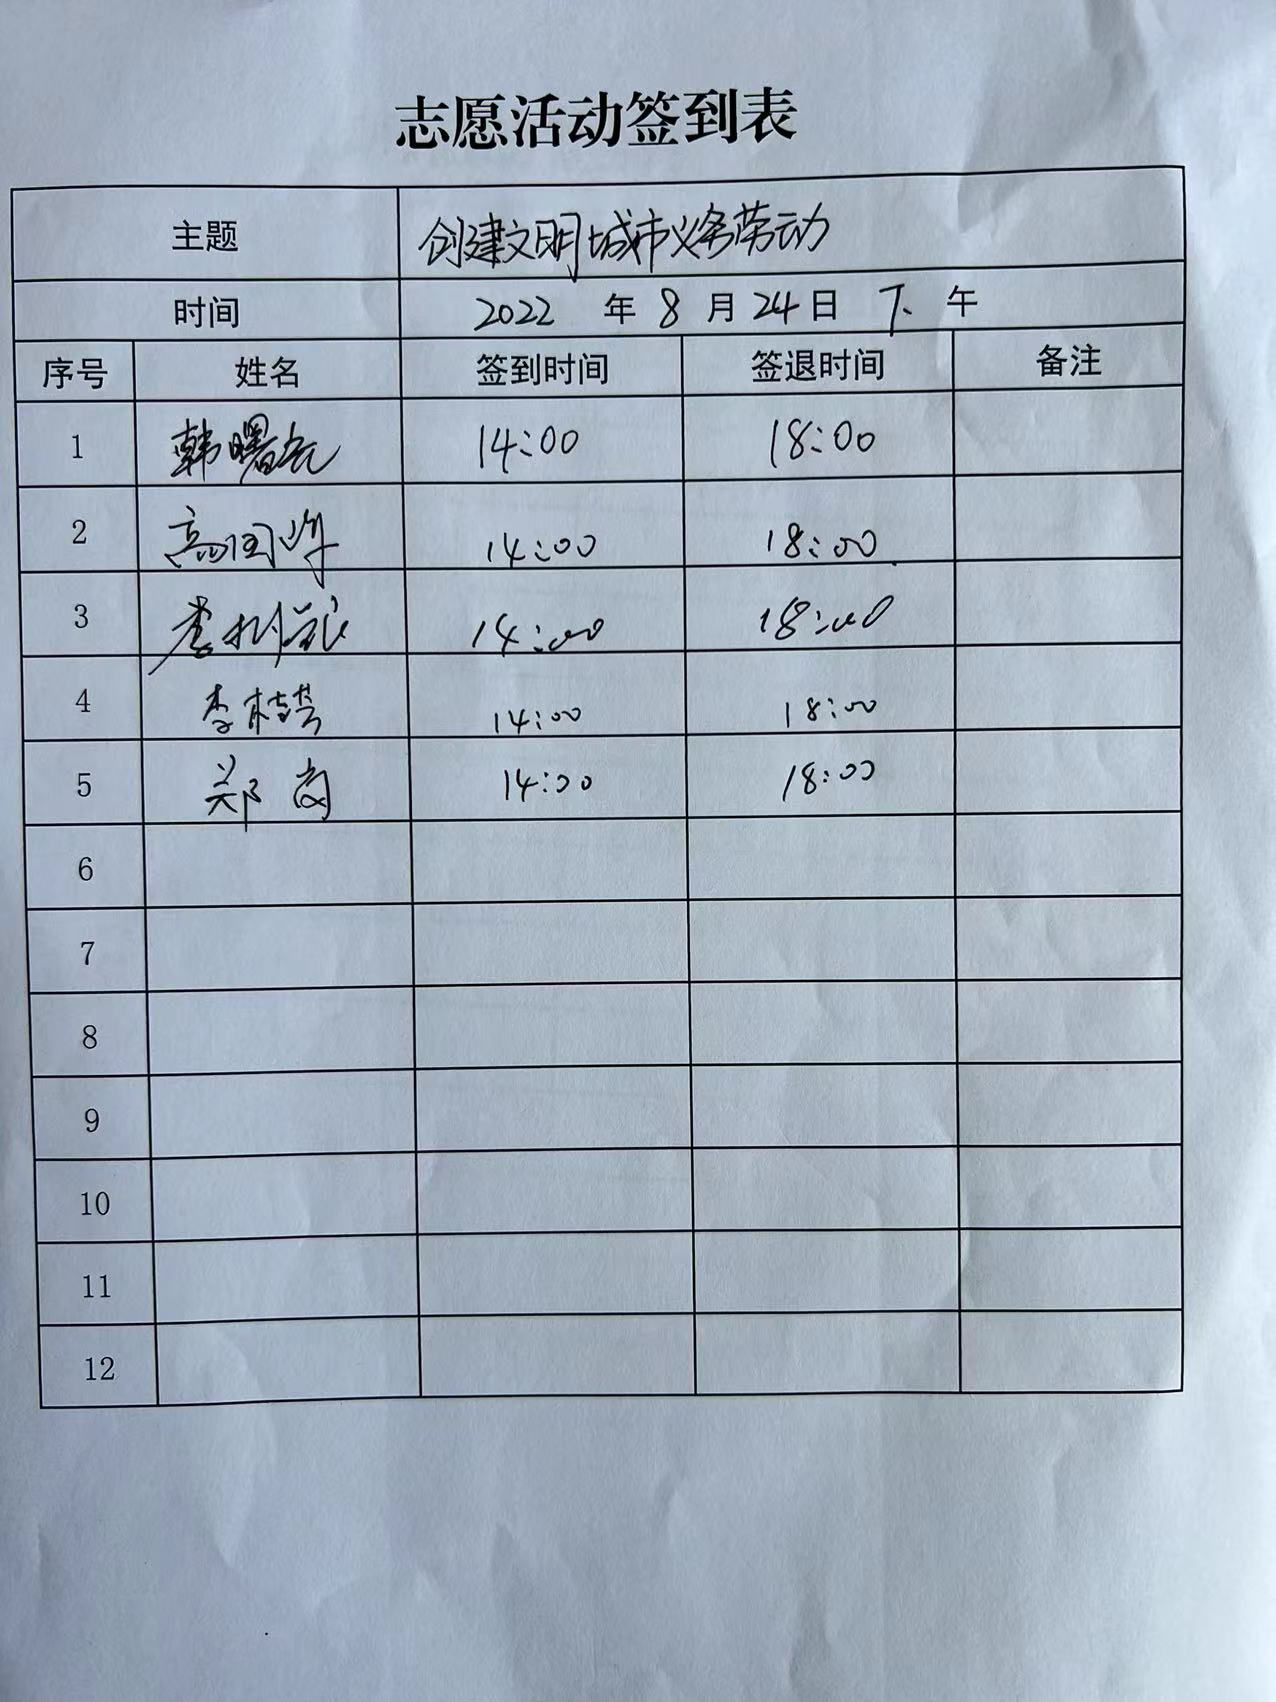 志愿活动签到表
主题 创建文明城市义务劳动
时间 2022 年 8 月 24 日 下 午
序号 姓名 签到时间 签退时间 备注
1 韩曙 14:00 18:00
2 高国峰 14:00 18:00
3 李树 14:00 18:00
4 李桂芸 14:00 18:00
5 郑岗 14:00 18:00
6
7
8
9
10
11
12